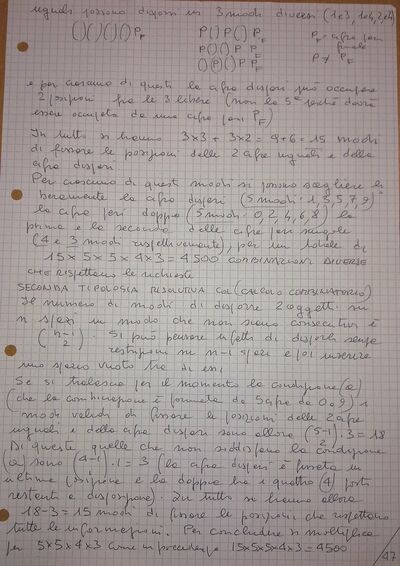 uguali possono disporsi in 3 modi diversi (1e3, 1e4, 2e4)
( )( )( )( ) P_F   P( )P( )P_F   P_F = cifra pari finale
P( )( )P P_F   P ≠ P_F
( )P( )P P_F
e per ciascuno di questi la cifra dispari può occupare
2 posizioni fra le 3 libere (non la 5ª perché dovrà
essere occupata da una cifra pari P_F)
In tutto si hanno 3x3 + 3x2 = 9+6 = 15 modi
di fissare le posizioni delle 2 cifre uguali e della
cifra dispari
Per ciascuno di questi modi si possono scegliere li
beramente la cifra dispari (5 modi: 1, 3, 5, 7, 9)
la cifra pari doppia (5 modi: 0, 2, 4, 6, 8) la
prima e la seconda delle cifre pari singole
(4 e 3 modi rispettivamente), per un totale di
15 x 5 x 5 x 4 x 3 = 4500 COMBINAZIONI DIVERSE
CHE RISPETTANO LE RICHIESTE
SECONDA TIPOLOGIA RISOLUTIVA COL (CALCOLO COMBINATORIO)
Il numero di modi di disporre 2 oggetti su
n spazi in modo che non siano consecutivi è
(n-1 2). Si può pensare infatti di disporli senza
restrizioni su n-1 spazi e poi inserire
uno spazio vuoto tra di essi
Se si tralascia per il momento la condizione (a)
(che la combinazione è formata da 5 cifre da 0 a 9) i
modi validi di fissare le posizioni delle 2 cifre
uguali e della cifra dispari sono allora (5-1 2)·3 = 18
Di queste quelle che non soddisfano la condizione
(a) sono (4-1 2)·1 = 3 (la cifra dispari è fissata in
ultima posizione e la doppia ha i quattro (4) posti
restanti a disposizione). In tutto si hanno allora
18-3 = 15 modi di fissare le posizioni che rispettano
tutte le informazioni. Per concludere si moltiplica
per 5x5x4x3 come in precedenza 15x5x5x4x3 = 4500
47